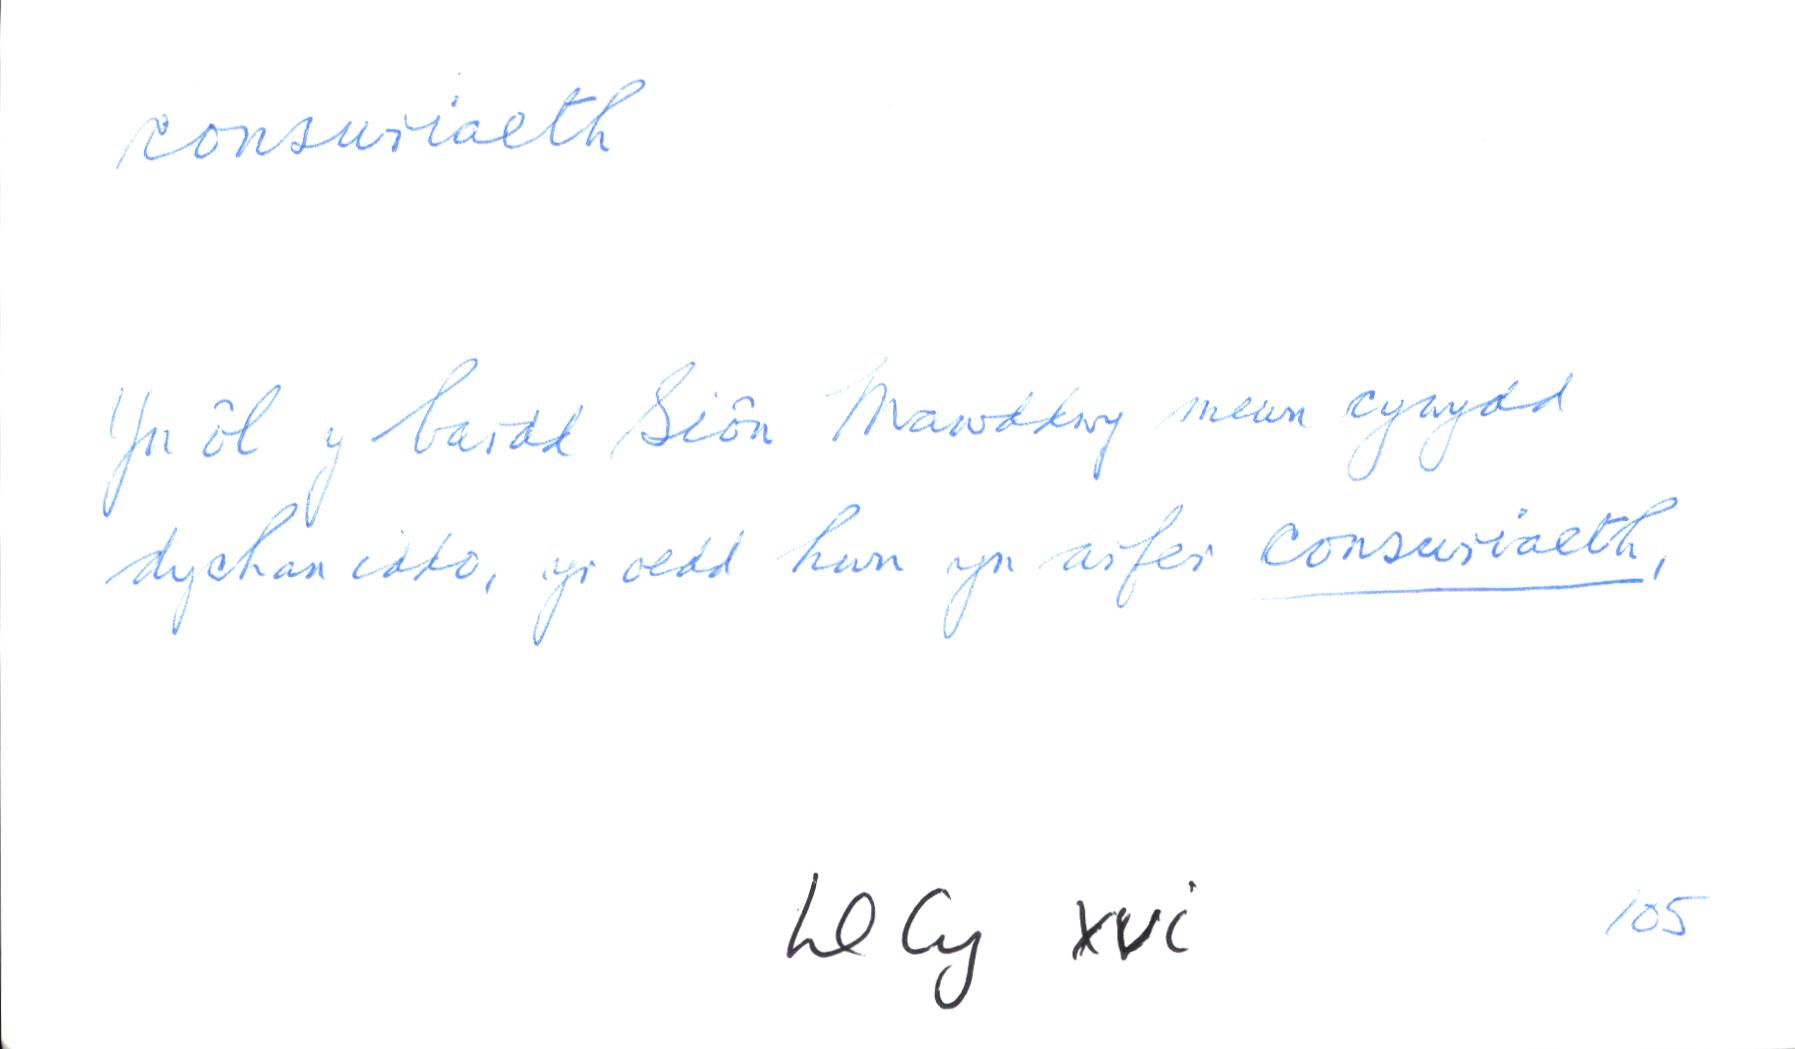 consuriaeth
Yn ôl y bardd Siôn Mawddwy mewn cywydd
dychan iddo, yr oedd hwn yn arfer consuriaeth,
Ll Cy xvi 105